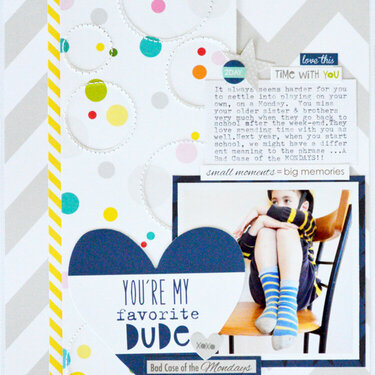 love this
2DAY
TiME WiTH YOU
It always seems harder for you
to settle into playing on your
own, on a Monday.  You miss
your older sister & brothers
very much when they go back to
school after the week-end.They
love spending time with you as
well.Next year, when you start
school, we might have a differ
ent meaning to the phrase ...A
Bad Case of the MONDAYS!!
small moments = big memories
YOU'RE MY
favorite
DUDE
xoxo
Bad Case of the Mondays